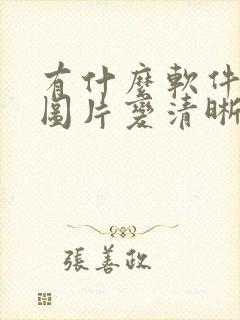 有什麼軟件
圖片變清晰
張善政